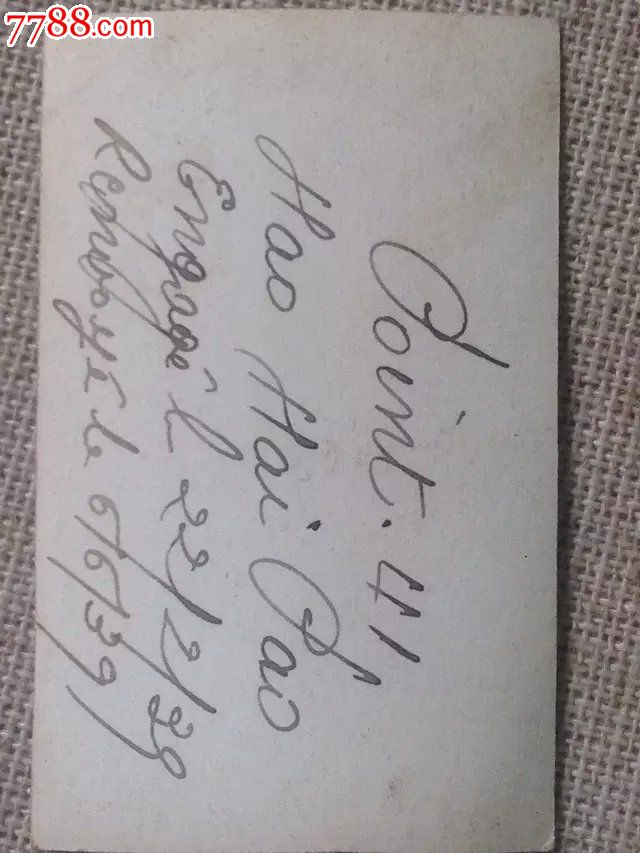 7788.com
Point. 41
Hao Hai Pao
Engagé l 22/2/39
Remboyé le 6/6/39